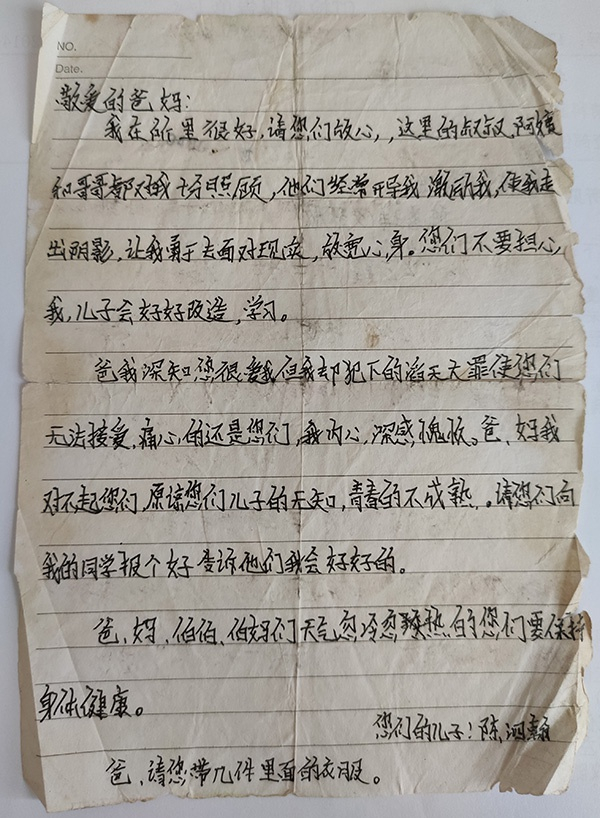 NO.
Date.
敬爱的爸妈:
我在所里很好,请您们放心,,这里的叔叔,阿姨
和哥哥都对我十分照顾,他们经常开导我激励我,使我走
出阴影,让我勇于去面对现实,放宽心,身。您们不要担心,
我,儿子会好好改造,学习。
爸我深知您很爱我但我却犯下的滔天大罪使您们
无法接受,痛心,的还是您们,我内心,深感,愧疚。爸、妈我
对不起您们,原谅您们儿子的无知,青春的不成熟。请您们向
我的同学报个好告诉他们我会好好的。
爸、妈、伯伯、伯妈们天气忽冷忽热的您们要保持
身体健康。
您们的儿子:陈泗翰
爸、请您带几件里面的衣服。